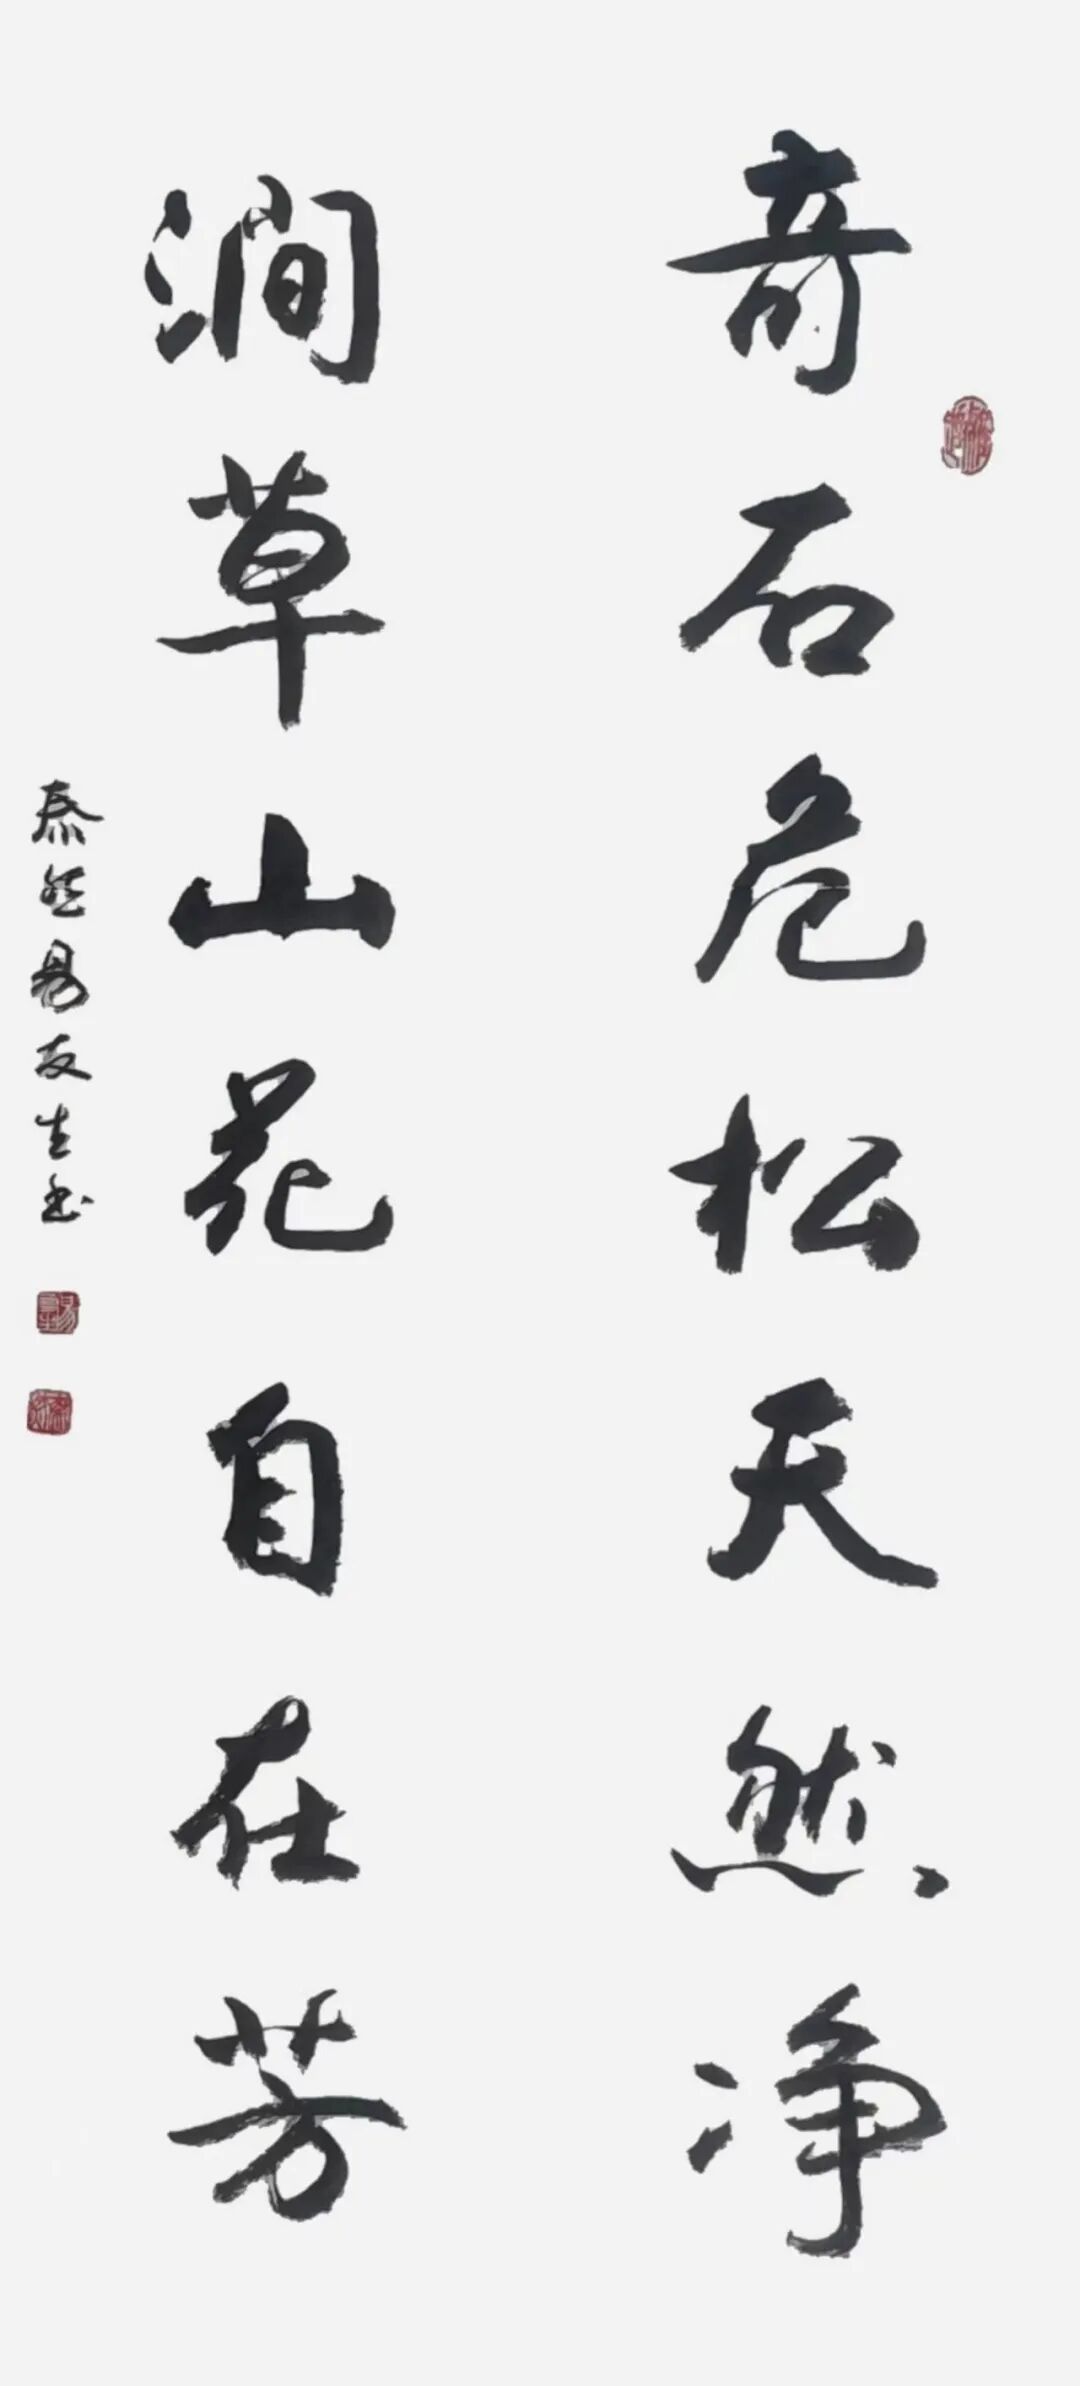 奇石危松天然净
涧草山花自在芳
泰然易友生书